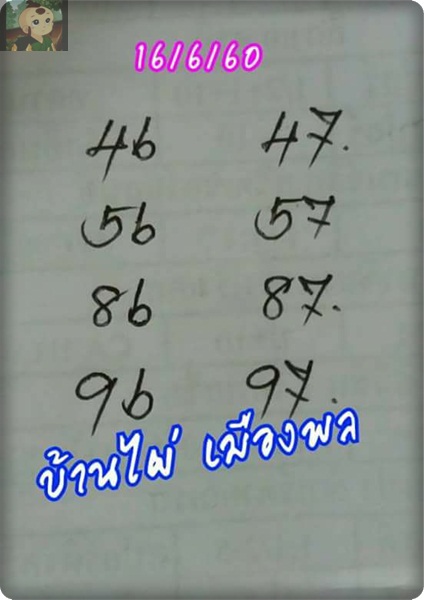 16/6/60
46 47.
56 57
86 87.
96 97.
บ้านไผ่ เมืองพล